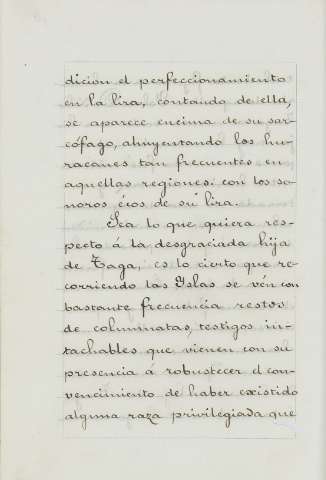 dicion el perfeccionamiento
en la lira, contando de ella,
se aparece encima de su sar-
cófago, ahuyentando los hu-
racanes tan frecuentes en
aquellas regiones. con los so-
noros écos de su lira.
Sea lo que quiera res-
pecto á la desgraciada hija
de Taga, es lo cierto que re-
corriendo las Yslas se vén con
bastante frecuencia restos
de columnatas, testigos in-
tachables que vienen con su
presencia á robustecer el con-
vencimiento de haber existido
alguna raza privilegiada que